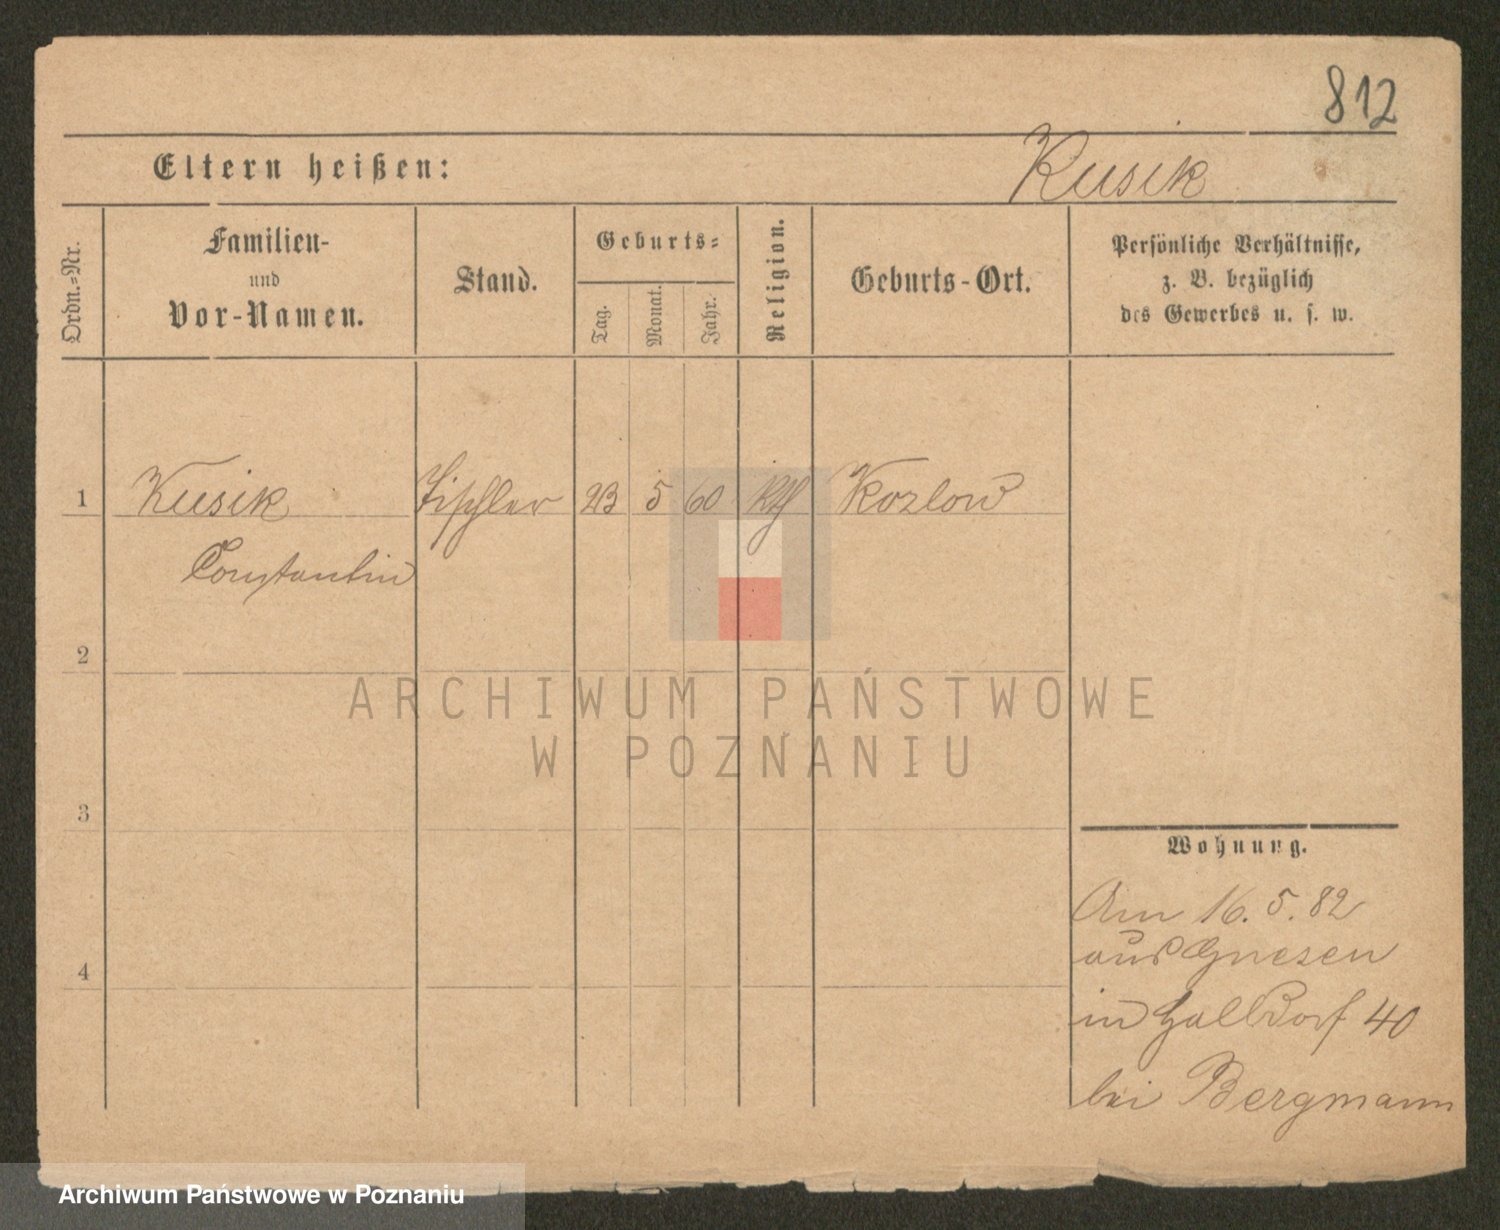 812
Eltern heißen:
Kusik
Ordn.-Nr.
Familien-
und
Vor-Namen.
Stand.
Geburts-
Tag.
Monat.
Jahr.
Religion.
Geburts-Ort.
Persönliche Verhältnisse,
z. B. bezüglich
des Gewerbes u. s. w.
1
Kusik
Tischler
23
5
60
Kth
Kozlow
Constantin
2
ARCHIWUM PAŃSTWOWE
W POZNANIU
3
Wohnung.
Am 16. 5. 82
aus Gnesen
4
in Halbdorf 40
bei Bergmann
Archiwum Państwowe w Poznaniu